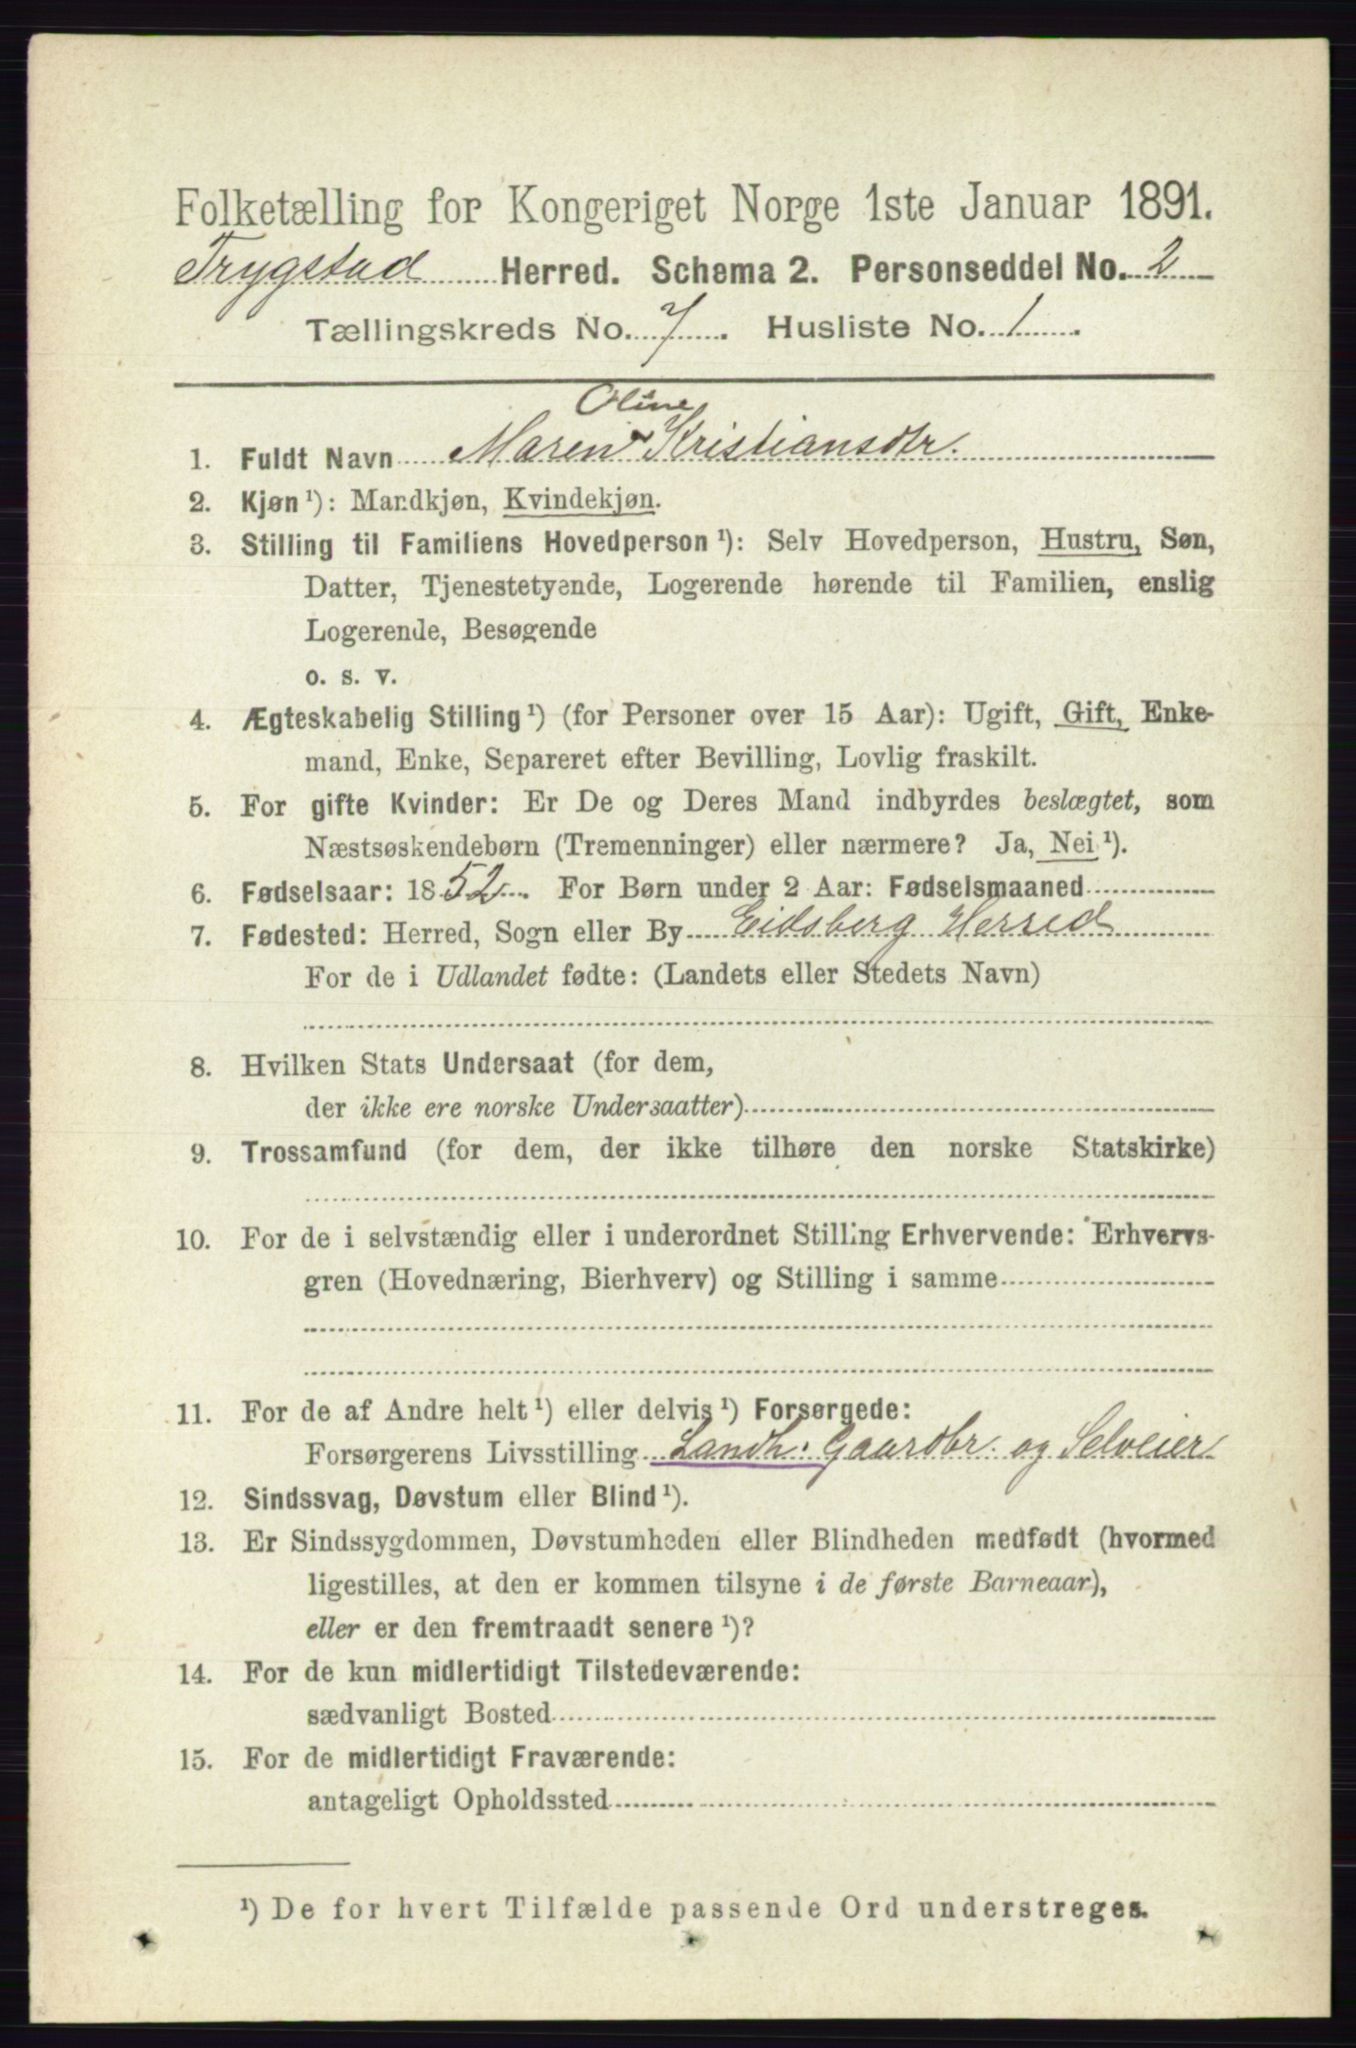 Folketælling for Kongeriget Norge 1ste Januar 1891.
Trygstad Herred. Schema 2. Personseddel No. 2
Tællingskreds No. 7. Husliste No. 1.
Oline
1. Fuldt Navn Maren Kristiansdtr.
2. Kjøn¹): Mandkjøn, Kvindekjøn.
3. Stilling til Familiens Hovedperson¹): Selv Hovedperson, Hustru, Søn,
Datter, Tjenestetyende, Logerende hørende til Familien, enslig
Logerende, Besøgende
o. s. v.
4. Ægteskabelig Stilling¹) (for Personer over 15 Aar): Ugift, Gift, Enke-
mand, Enke, Separeret efter Bevilling, Lovlig fraskilt.
5. For gifte Kvinder: Er De og Deres Mand indbyrdes beslægtet, som
Næstsøskendebørn (Tremenninger) eller nærmere? Ja, Nei¹).
6. Fødselsaar: 1852. For Børn under 2 Aar: Fødselsmaaned
7. Fødested: Herred, Sogn eller By Eidsberg Herred
For de i Udlandet fødte: (Landets eller Stedets Navn)
8. Hvilken Stats Undersaat (for dem,
der ikke ere norske Undersaatter)
9. Trossamfund (for dem, der ikke tilhøre den norske Statskirke)
10. For de i selvstændig eller i underordnet Stilling Erhvervende: Erhvervs-
gren (Hovednæring, Bierhverv) og Stilling i samme
11. For de af Andre helt¹) eller delvis¹) Forsørgede:
Forsørgerens Livsstilling Landh. Gaardbr. og Selveier
12. Sindssvag, Døvstum eller Blind¹).
13. Er Sindssygdommen, Døvstumheden eller Blindheden medfødt (hvormed
ligestilles, at den er kommen tilsyne i de første Barneaar),
eller er den fremtraadt senere¹)?
14. For de kun midlertidigt Tilstedeværende:
sædvanligt Bosted
15. For de midlertidigt Fraværende:
antageligt Opholdssted
¹) De for hvert Tilfælde passende Ord understreges.